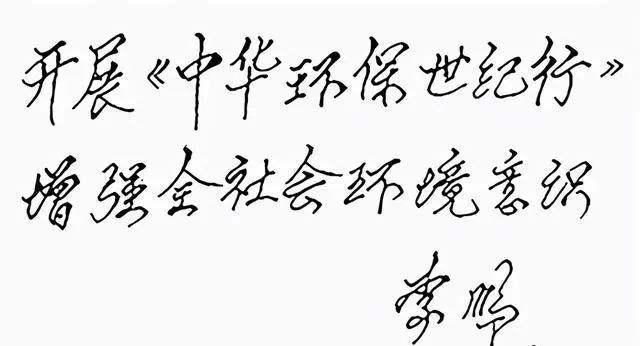 开展《中华环保世纪行》
增强全社会环境意识
李鹏